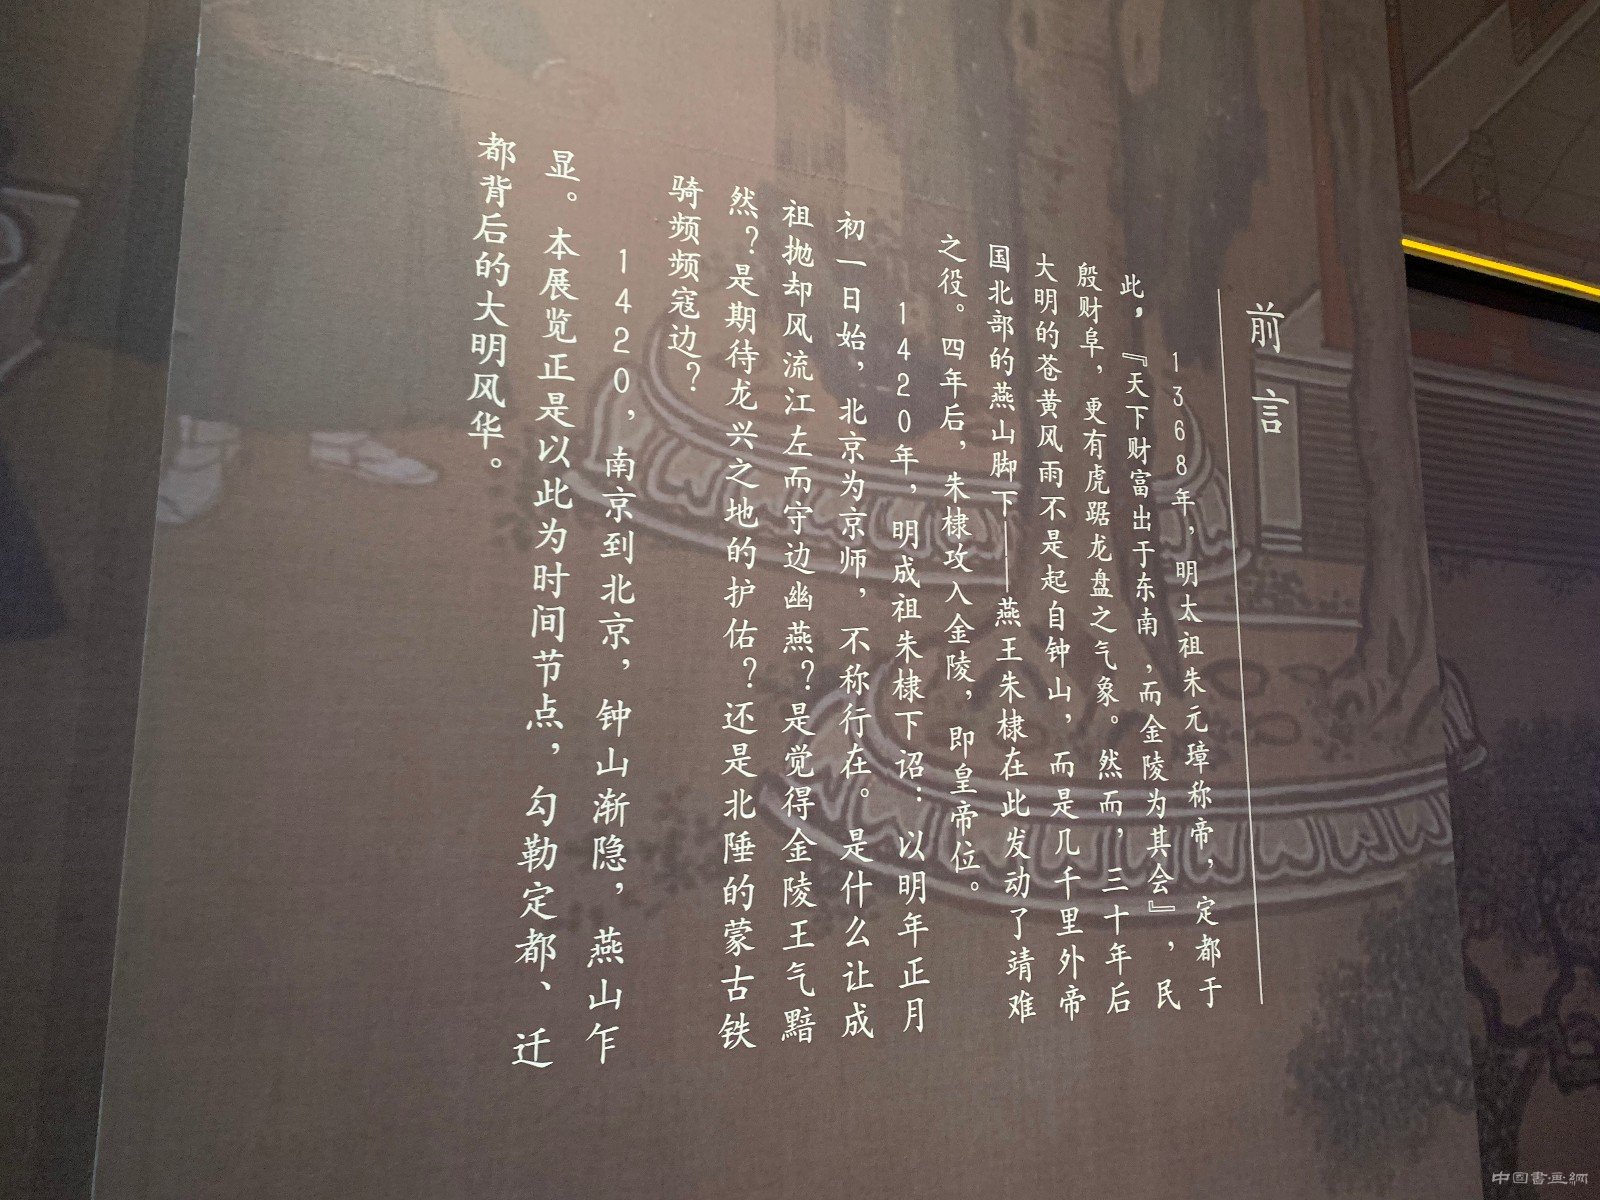 前言
1368年，明太祖朱元璋称帝，定都于
此，『天下财富出于东南，而金陵为其会』，民
殷财阜，更有虎踞龙盘之气象。然而，三十年后
大明的苍黄风雨不是起自钟山，而是几千里外帝
国北部的燕山脚下——燕王朱棣在此发动了靖难
之役。四年后，朱棣攻入金陵，即皇帝位。
1420年，明成祖朱棣下诏：以明年正月
初一日始，北京为京师，不称行在。是什么让成
祖抛却风流江左而守边幽燕？是觉得金陵王气黯
然？是期待龙兴之地的护佑？还是北陲的蒙古铁
骑频频寇边？
1420，南京到北京，钟山渐隐，燕山乍
显。本展览正是以此为时间节点，勾勒定都、迁
都背后的大明风华。
中国書画網